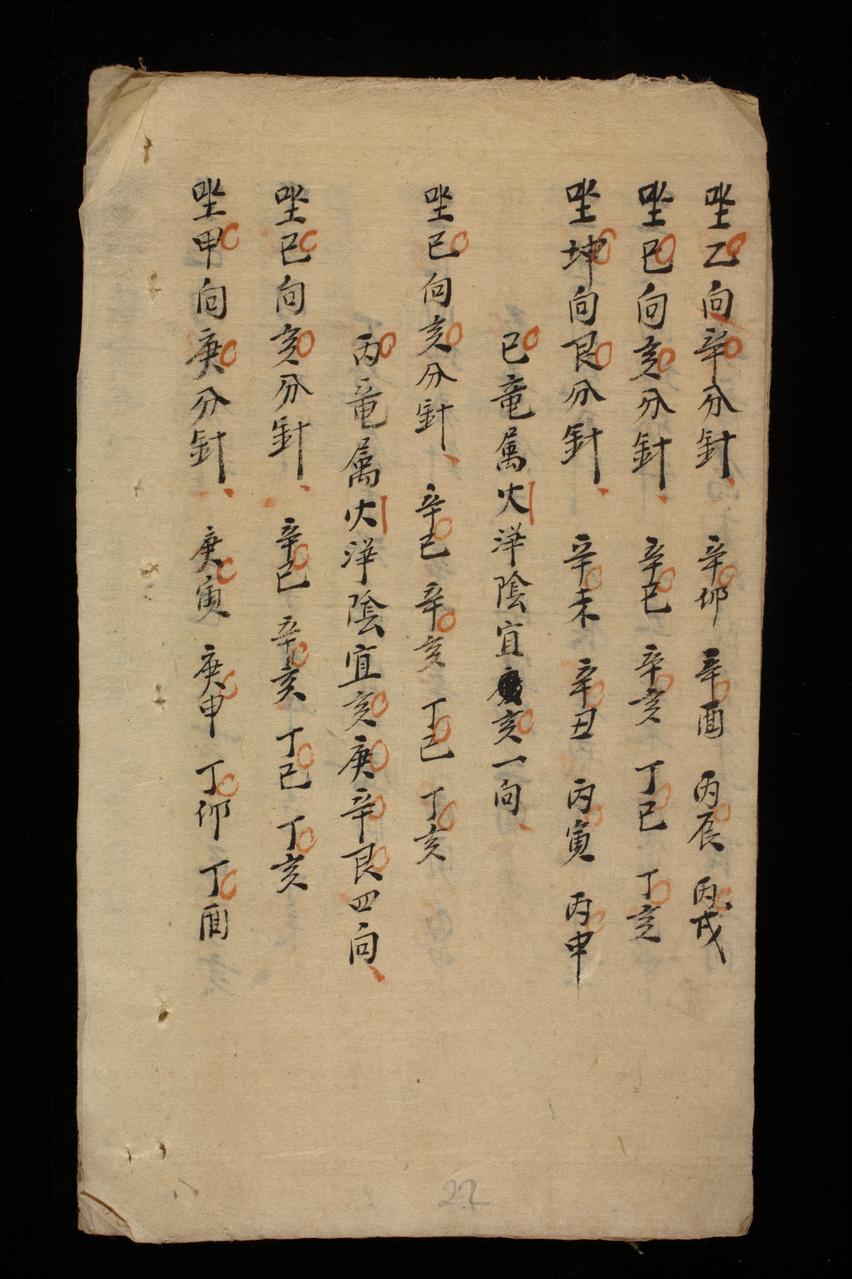 坐乙向辛分針 辛卯 辛酉 丙辰 丙戌
坐巳向亥分針 辛巳 辛亥 丁巳 丁亥
坐坤向艮分針 辛未 辛丑 丙寅 丙申
巳竜属火净陰宜亥一向
坐巳向亥分針 辛巳 辛亥 丁巳 丁亥
丙竜属火净陰宜亥庚辛艮四向
坐巳向亥分針 辛巳 辛亥 丁巳 丁亥
坐甲向庚分針 庚寅 庚申 丁卯 丁酉
22